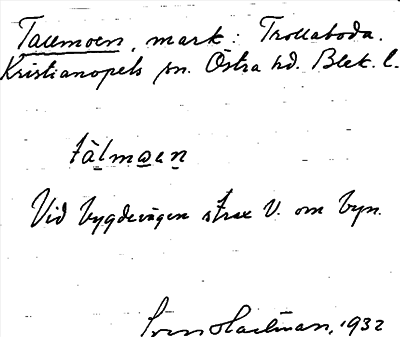 Tallmoen, mark: Trollaboda.
Kristianopels sn. Östra hd. Blek. l.
tàlmωen
Vid bygdevägen strax V. om byn.
Sven Hallman, 1932